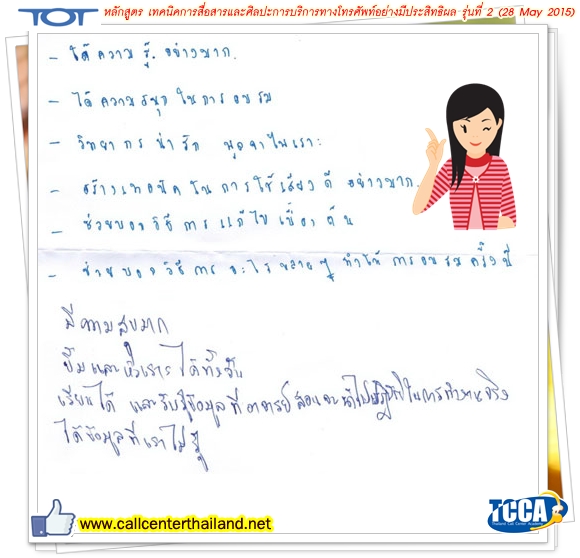 TOT หลักสูตร เทคนิคการสื่อสารและศิลปะการบริการทางโทรศัพท์อย่างมีประสิทธิผล รุ่นที่ 2 (28 May 2015)
- ได้ความรู้ อย่างมาก.
- ได้ความสนุกในการอบรม
- วิทยากรน่ารัก พูดจาไพเราะ
- สร้างเทคนิคในการใช้เสียงดีอย่างมาก.
- ช่วยบอกวิธีการแก้ไขเบื้องต้น
- ช่วยบอกวิธีการอะไรหลายๆ ทำให้การอบรมครั้งนี้
มีความสุขมาก
ยิ้มและหัวเราะได้ทั้งวัน
เรียนได้ และรับรู้ข้อมูลที่อาจารย์สอนจะนำไปปฏิบัติในการทำงานจริง
ได้ข้อมูลที่เราไม่รู้
www.callcenterthailand.net
TCCA
Thailand Call Center Academy